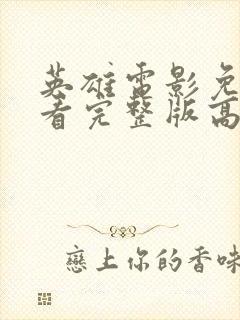 英雄电影免
看完整版高
戀上你的香味